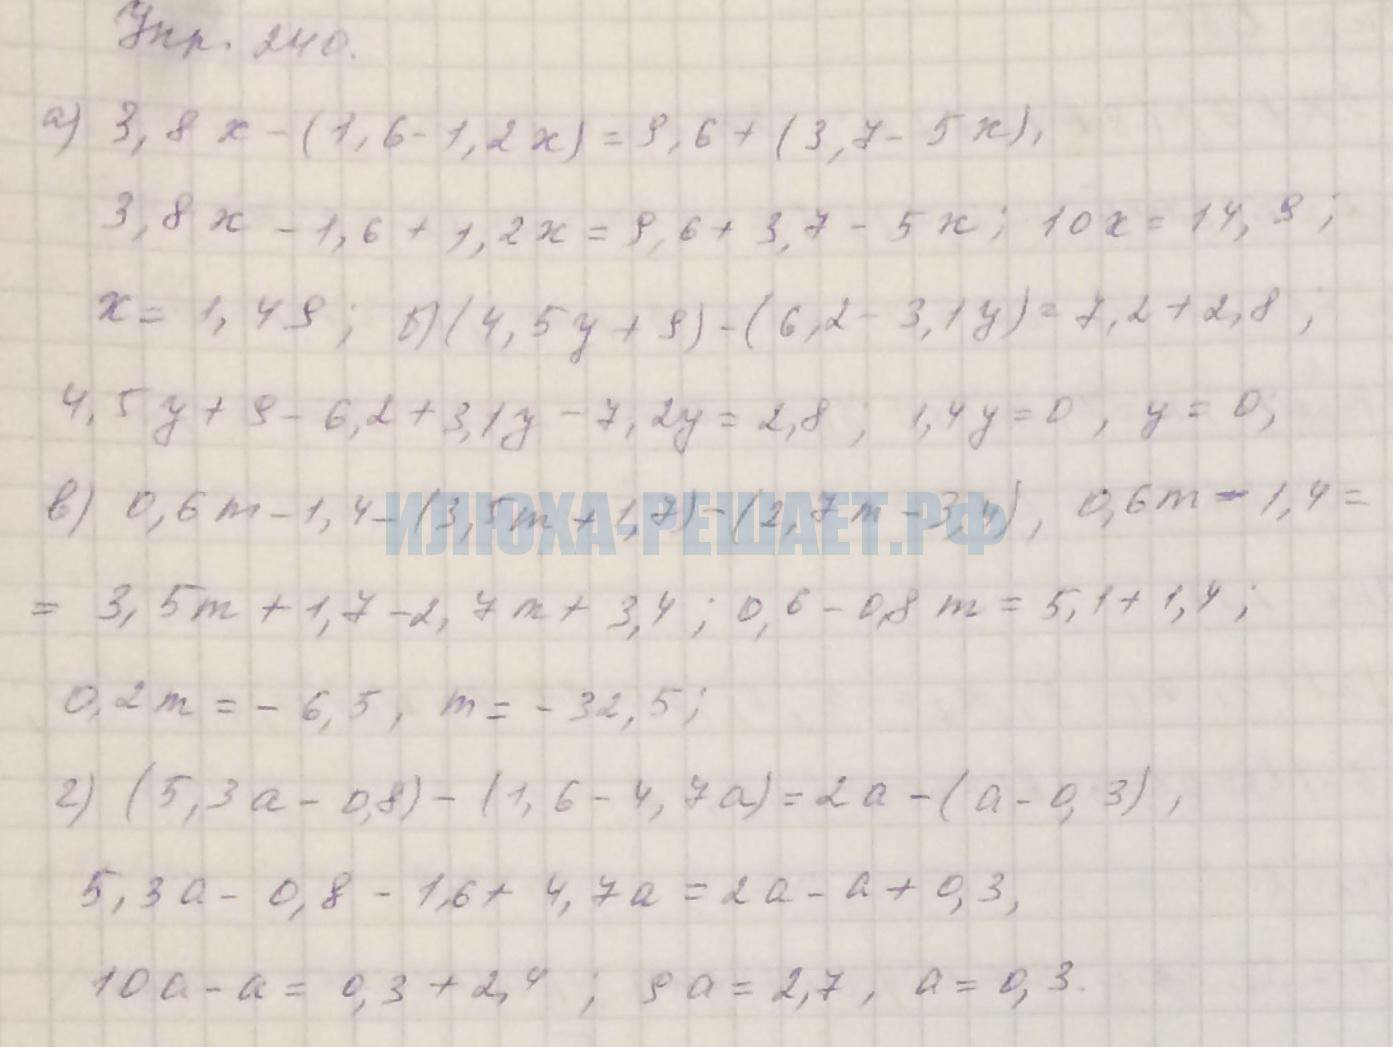 Упр. 240.
а) 3,8x - (1,6 - 1,2x) = 9,6 + (3,7 - 5x),
3,8x - 1,6 + 1,2x = 9,6 + 3,7 - 5x; 10x = 14,9;
x = 1,49; б) (4,5y + 9) - (6,2 - 3,1y) = 7,2 + 2,8;
4,5y + 9 - 6,2 + 3,1y - 7,2y = 2,8; 1,4y = 0, y = 0;
в) 0,6m - 1,4 - (3,5m + 1,7) - (2,7m - 3,4), 0,6m - 1,4 =
ИЛЮХА-РЕШАЕТ.РФ
= 3,5m + 1,7 - 2,7m + 3,4; 0,6 - 0,8m = 5,1 + 1,4;
0,2m = - 6,5, m = - 32,5;
г) (5,3a - 0,8) - (1,6 - 4,7a) = 2a - (a - 0,3),
5,3a - 0,8 - 1,6 + 4,7a = 2a - a + 0,3,
10a - a = 0,3 + 2,4; 9a = 2,7, a = 0,3.